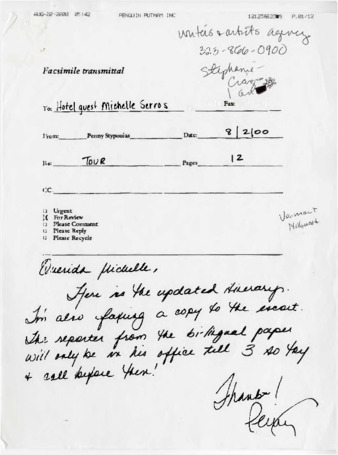 AUG-02-2000 05:42 PENGUIN PUTNAM INC P.01/12
writers & artists agency
323-866-0900
Facsimile transmittal
Stephanie
To: Hotel guest Michelle Serros Fax:
From: Penny Sypossias Date: 8/2/00
Re: Tour Pages 12
CC
Urgent
X For Review
Please Comment
Please Reply
Please Recycle
Vermont
Querida Michelle,
Here is the updated itinerary.
I'm also faxing a copy to the escort.
The reporter from the bilingual paper
will only be in his office till 3 so try
& call before then!
Thanks!
Penny